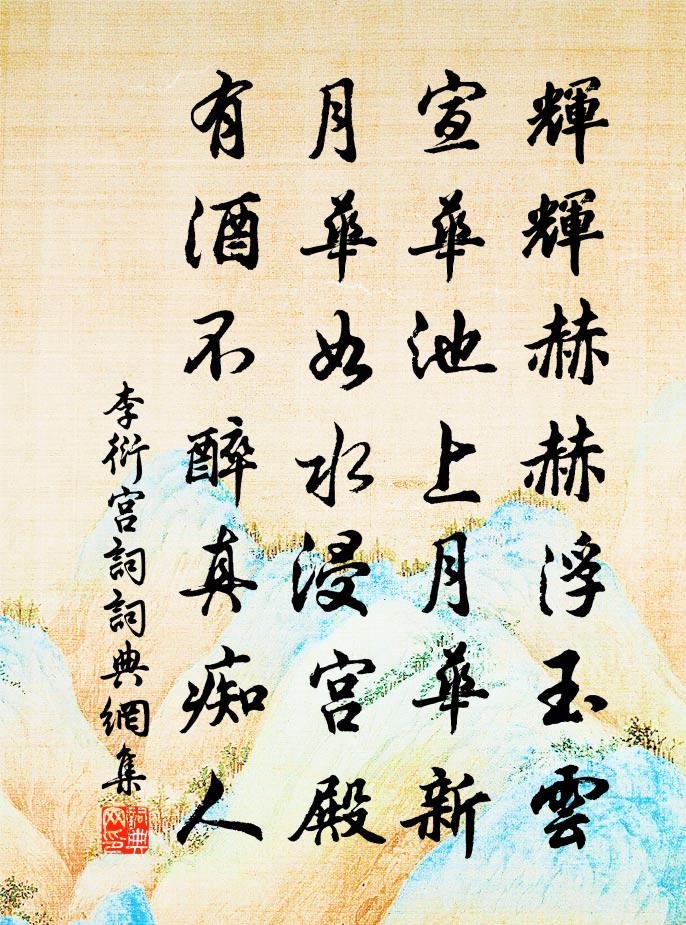 輝輝赫赫浮玉雲
宣華池上月華新
月華如水浸宮殿
有酒不醉真痴人
李衍宮詞詞典網集
詞典網印